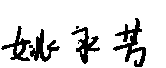 姚永芳